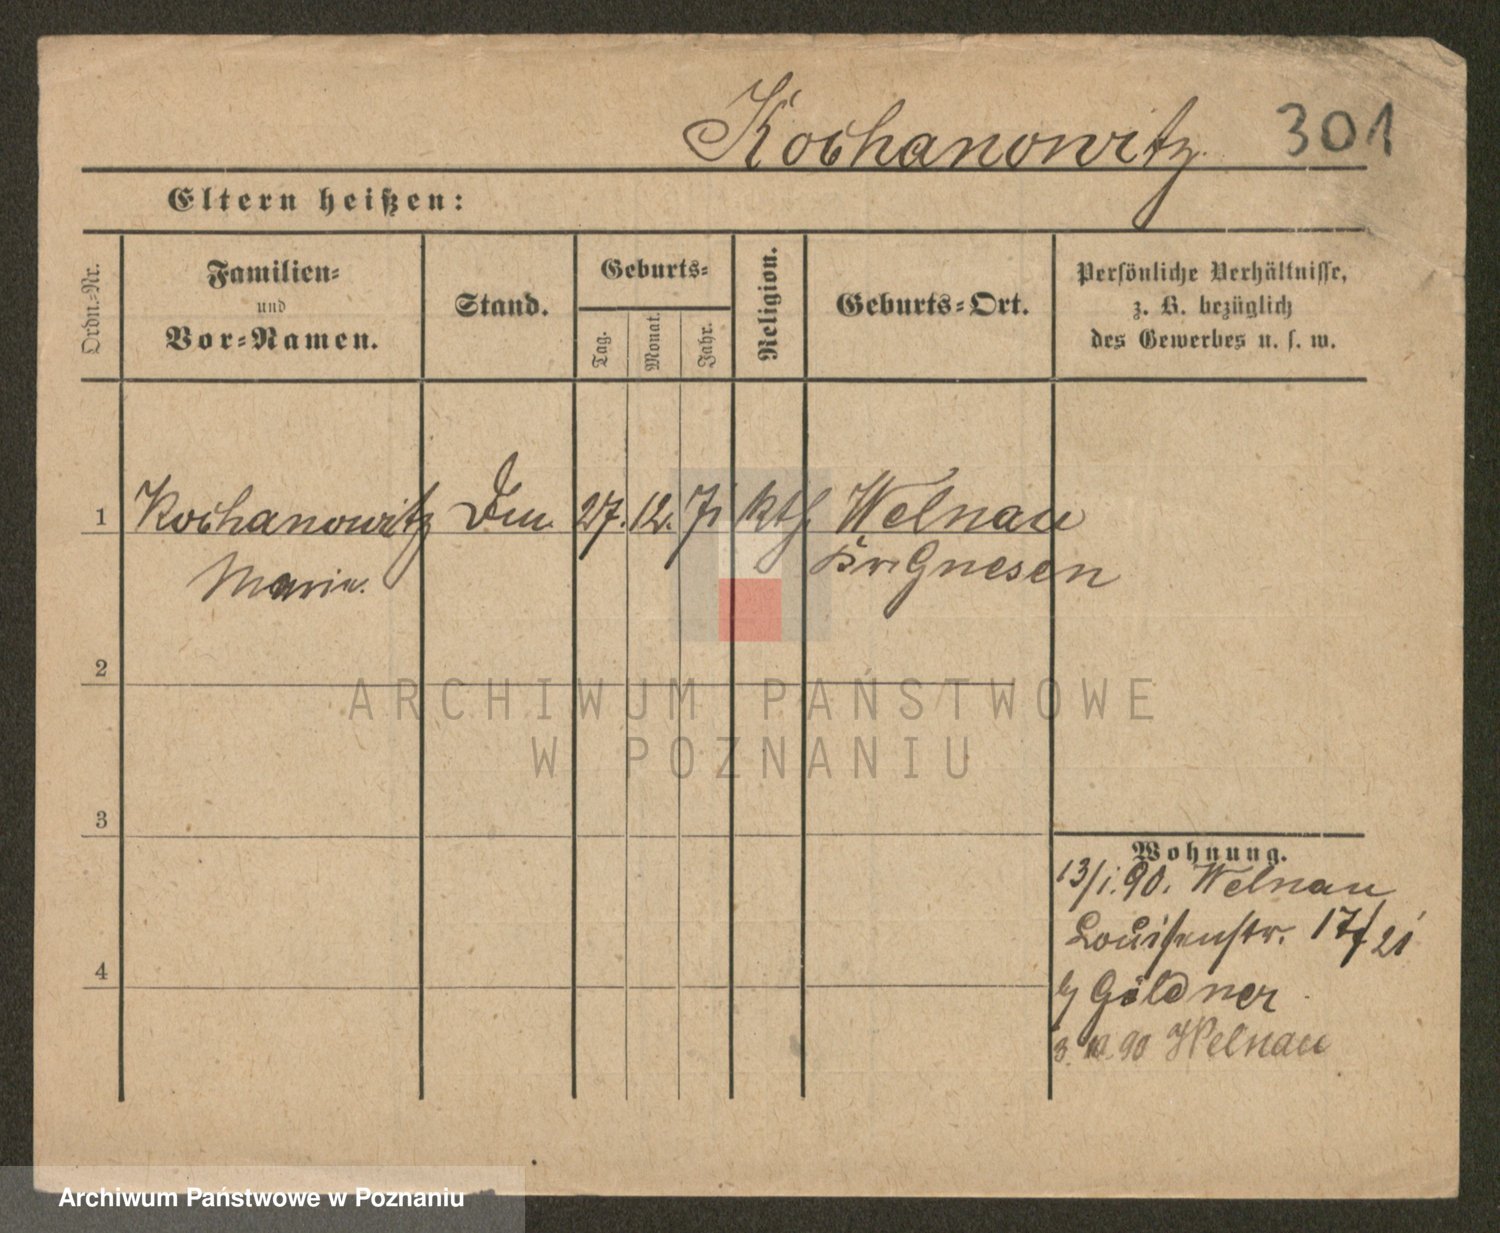 Kochanowitz 301
Eltern heißen:
Ordn.-Nr.
Familien-
und
Vor-Namen.
Stand.
Geburts-
Tag.
Monat.
Jahr.
Religion.
Geburts-Ort.
Persönliche Verhältnisse,
z. B. bezüglich
des Gewerbes u. s. w.
1 Kochanowitz 27. 12. 71 kth Welnau
Maria Kr. Gnesen
2
3
4
Wohnung.
13/1.90. Welnau
Louisenstr. 17/
Göldner
90 Welnau
ARCHIWUM PAŃSTWOWE
W POZNANIU
Archiwum Państwowe w Poznaniu